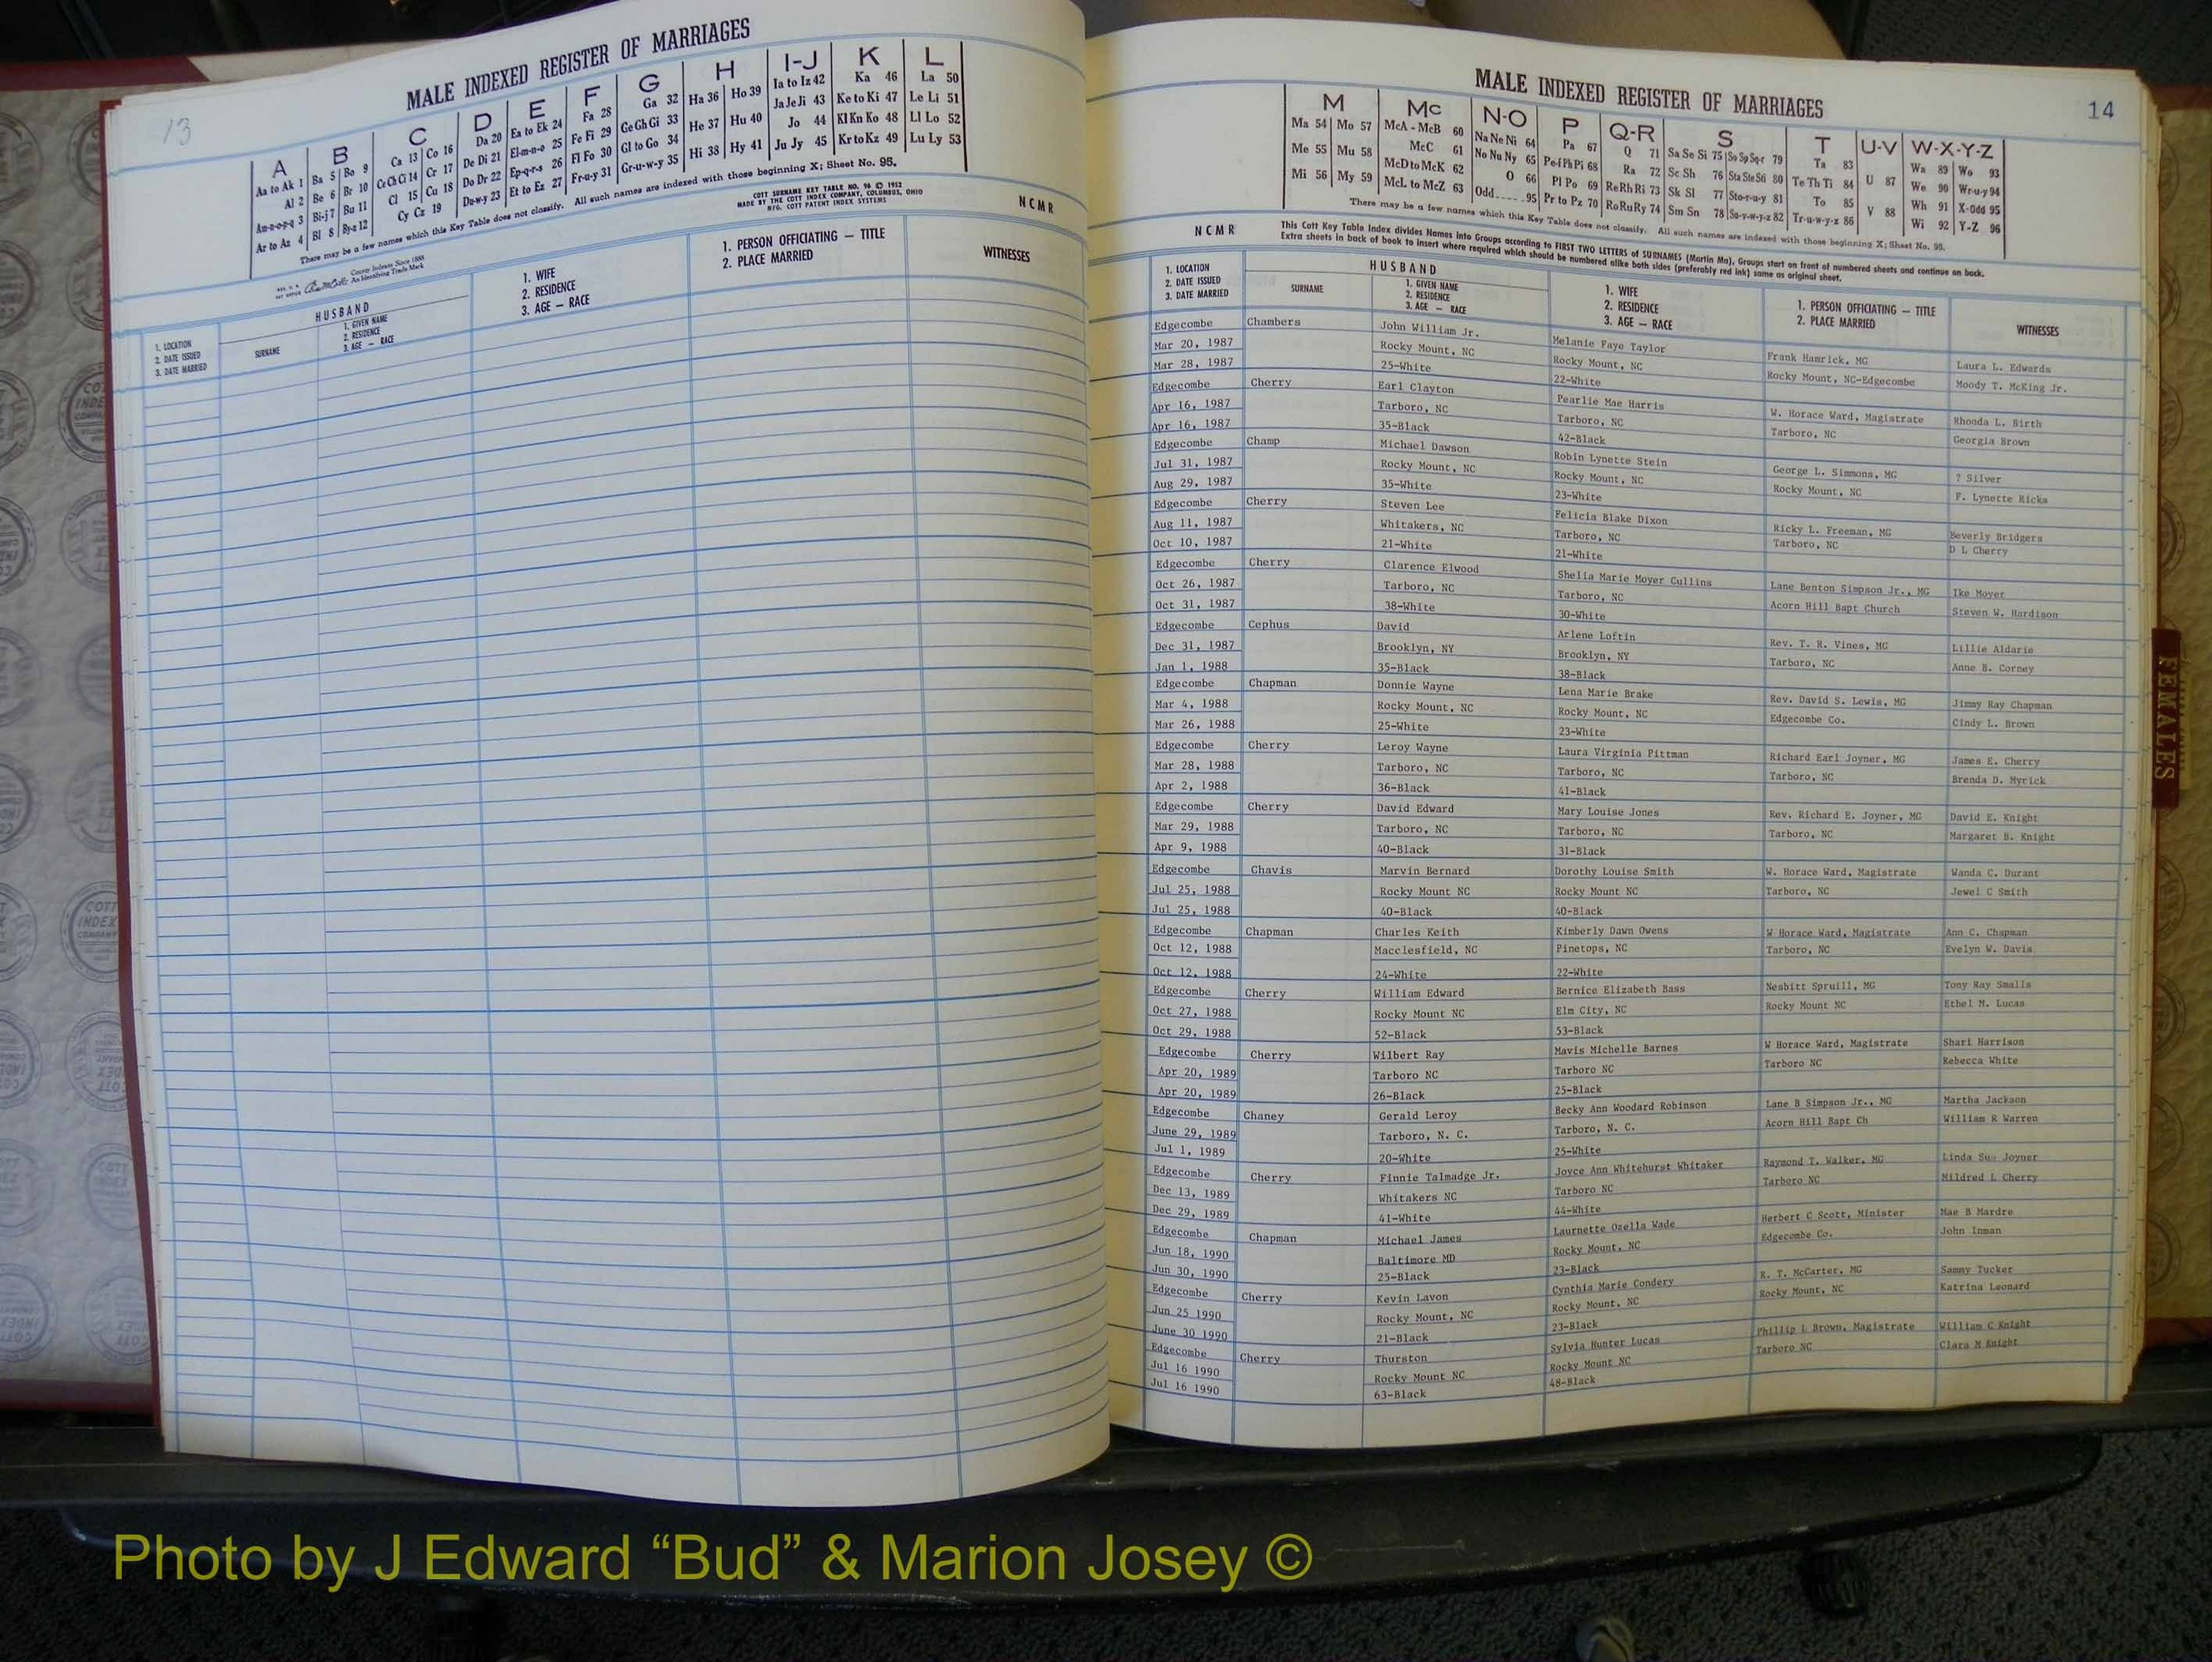 13
MALE INDEXED REGISTER OF MARRIAGES
A B C D E F G H I-J K L
Aa to Ak 1 Ba 5 Bo 9 Ca 13 Co 16 Da 20 Ea to Ek 24 Fa 28 Ga 32 Ha 36 Ho 39 Ia to Iz 42 Ka 46 La 50
Al 2 Be 6 Br 10 Ce Ch Ci 14 Cr 17 De Di 21 El-m-n-o 25 Fe Fi 29 Ge Gh Gi 33 He 37 Hu 40 Ja Je Ji 43 Ke to Ki 47 Le Li 51
Am-n-o-p-q 3 Bi-j 7 Bu 11 Cl 15 Cu 18 Do Dr 22 Ep-q-r-s 26 Fl Fo 30 Gl to Go 34 Hi 38 Hy 41 Jo 44 Kl Kn Ko 48 Ll Lo 52
Ar to Az 4 Bl 8 By-z 12 Cy Cz 19 Du-w-y 23 Et to Ez 27 Fr-u-y 31 Gr-u-w-y 35 Ju Jy 45 Kr to Kz 49 Lu Ly 53
There may be a few names which this Key Table does not classify. All such names are indexed with those beginning X; Sheet No. 95.
County Indexes Since 1888
An Identifying Trade Mark
COTT SURNAME KEY TABLE NO. 96 © 1952
MADE BY THE COTT INDEX COMPANY, COLUMBUS, OHIO
MFG. COTT PATENT INDEX SYSTEMS
NCMR
1. LOCATION
2. DATE ISSUED
3. DATE MARRIED
HUSBAND
SURNAME
1. GIVEN NAME
2. RESIDENCE
3. AGE — RACE
1. WIFE
2. RESIDENCE
3. AGE — RACE
1. PERSON OFFICIATING — TITLE
2. PLACE MARRIED
WITNESSES
MALE INDEXED REGISTER OF MARRIAGES
14
M Mc N-O P Q-R S T U-V W-X-Y-Z
Ma 54 Mo 57 McA - McB 60 Na Ne Ni 64 Pa 67 Q 71 Sa Se Si 75 So Sp Sq-r 79 Ta 83 U 87 Wa 89 Wo 93
Me 55 Mu 58 McC 61 No Nu Ny 65 Pe-f Ph Pi 68 Ra 72 Sc Sh 76 Sta Ste Sti 80 Te Th Ti 84 We 90 Wr-u-y 94
Mi 56 My 59 McD to McK 62 O 66 Pl Po 69 Re Rh Ri 73 Sk Sl 77 Sto-r-u-y 81 To 85 V 88 Wh 91 X-Odd 95
McL to McZ 63 Odd 95 Pr to Pz 70 Ro Ru Ry 74 Sm Sn 78 Su-v-w-y-z 82 Tr-u-w-y-z 86 Wi 92 Y-Z 96
There may be a few names which this Key Table does not classify. All such names are indexed with those beginning X; Sheet No. 95.
NCMR
This Cott Key Table Index divides Names into Groups according to FIRST TWO LETTERS of SURNAMES (Martin Ma), Groups start on front of numbered sheets and continue on back.
Extra sheets in back of book to insert where required which should be numbered alike both sides (preferably red ink) same as original sheet.
1. LOCATION
2. DATE ISSUED
3. DATE MARRIED
HUSBAND
SURNAME
1. GIVEN NAME
2. RESIDENCE
3. AGE — RACE
1. WIFE
2. RESIDENCE
3. AGE — RACE
1. PERSON OFFICIATING — TITLE
2. PLACE MARRIED
WITNESSES
Edgecombe Chambers John William Jr. Melanie Faye Taylor Frank Hamrick, MG Laura L. Edwards
Mar 20, 1987 Rocky Mount, NC Rocky Mount, NC Rocky Mount, NC-Edgecombe Moody T. McKing Jr.
Mar 28, 1987 25-White 22-White
Edgecombe Cherry Earl Clayton Pearlie Mae Harris W. Horace Ward, Magistrate Rhonda L. Birth
Apr 16, 1987 Tarboro, NC Tarboro, NC Tarboro, NC Georgia Brown
Apr 16, 1987 35-Black 42-Black
Edgecombe Champ Michael Dawson Robin Lynette Stein George L. Simmons, MG ? Silver
Jul 31, 1987 Rocky Mount, NC Rocky Mount, NC Rocky Mount, NC F. Lynette Hicks
Aug 29, 1987 35-White 23-White
Edgecombe Cherry Steven Lee Felicia Blake Dixon Ricky L. Freeman, MG Beverly Bridgers
Aug 11, 1987 Whitakers, NC Tarboro, NC Tarboro, NC D L Cherry
Oct 10, 1987 21-White 21-White
Edgecombe Cherry Clarence Elwood Shelia Marie Moyer Cullins Lane Benton Simpson Jr., MG Ike Moyer
Oct 26, 1987 Tarboro, NC Tarboro, NC Acorn Hill Bapt Church Steven W. Hardison
Oct 31, 1987 38-White 30-White
Edgecombe Cephus David Arlene Loftin Rev. T. R. Vines, MG Lillie Aldarie
Dec 31, 1987 Brooklyn, NY Brooklyn, NY Tarboro, NC Anne B. Corney
Jan 1, 1988 35-Black 38-Black
Edgecombe Chapman Donnie Wayne Lena Marie Brake Rev. David S. Lewis, MG Jimmy Ray Chapman
Mar 4, 1988 Rocky Mount, NC Rocky Mount, NC Edgecombe Co. Cindy L. Brown
Mar 26, 1988 25-White 23-White
Edgecombe Cherry Leroy Wayne Laura Virginia Pittman Richard Earl Joyner, MG James E. Cherry
Mar 28, 1988 Tarboro, NC Tarboro, NC Tarboro, NC Brenda D. Myrick
Apr 2, 1988 36-Black 41-Black
Edgecombe Cherry David Edward Mary Louise Jones Rev. Richard E. Joyner, MG David E. Knight
Mar 29, 1988 Tarboro, NC Tarboro, NC Tarboro, NC Margaret B. Knight
Apr 9, 1988 40-Black 31-Black
Edgecombe Chavis Marvin Bernard Dorothy Louise Smith W. Horace Ward, Magistrate Wanda C. Durant
Jul 25, 1988 Rocky Mount NC Rocky Mount NC Tarboro, NC Jewel C Smith
Jul 25, 1988 40-Black 40-Black
Edgecombe Chapman Charles Keith Kimberly Dawn Owens W Horace Ward, Magistrate Ann C. Chapman
Oct 12, 1988 Macclesfield, NC Pinetops, NC Tarboro, NC Evelyn W. Davis
Oct 12, 1988 24-White 22-White
Edgecombe Cherry William Edward Bernice Elizabeth Bass Nesbitt Spruill, MG Tony Ray Smalls
Oct 27, 1988 Rocky Mount NC Elm City, NC Rocky Mount NC Ethel M. Lucas
Oct 29, 1988 52-Black 53-Black
Edgecombe Cherry Wilbert Ray Mavis Michelle Barnes W Horace Ward, Magistrate Shari Harrison
Apr 20, 1989 Tarboro NC Tarboro NC Tarboro NC Rebecca White
Apr 20, 1989 26-Black 25-Black
Edgecombe Chaney Gerald Leroy Becky Ann Woodard Robinson Lane B Simpson Jr., MG Martha Jackson
June 29, 1989 Tarboro, N. C. Tarboro, N. C. Acorn Hill Bapt Ch William R Warren
Jul 1, 1989 20-White 25-White
Edgecombe Cherry Finnie Talmadge Jr. Joyce Ann Whitehurst Whitaker Raymond T. Walker, MG Linda Sue Joyner
Dec 13, 1989 Whitakers NC Tarboro NC Tarboro NC Mildred L Cherry
Dec 29, 1989 41-White 44-White
Edgecombe Chapman Michael James Laurnette Ozella Wade Herbert C Scott, Minister Mae B Mardre
Jun 18, 1990 Baltimore MD Rocky Mount, NC Edgecombe Co. John Inman
Jun 30, 1990 25-Black 23-Black
Edgecombe Cherry Kevin Lavon Cynthia Marie Condery R. T. McCarter, MG Sammy Tucker
Jun 25 1990 Rocky Mount, NC Rocky Mount, NC Rocky Mount, NC Katrina Leonard
June 30 1990 21-Black 23-Black
Edgecombe Cherry Thurston Sylvia Hunter Lucas Phillip L Brown, Magistrate William C Knight
Jul 16 1990 Rocky Mount NC Rocky Mount NC Tarboro NC Clara M Knight
Jul 16 1990 63-Black 48-Black
FEMALES
Photo by J Edward “Bud” & Marion Josey ©